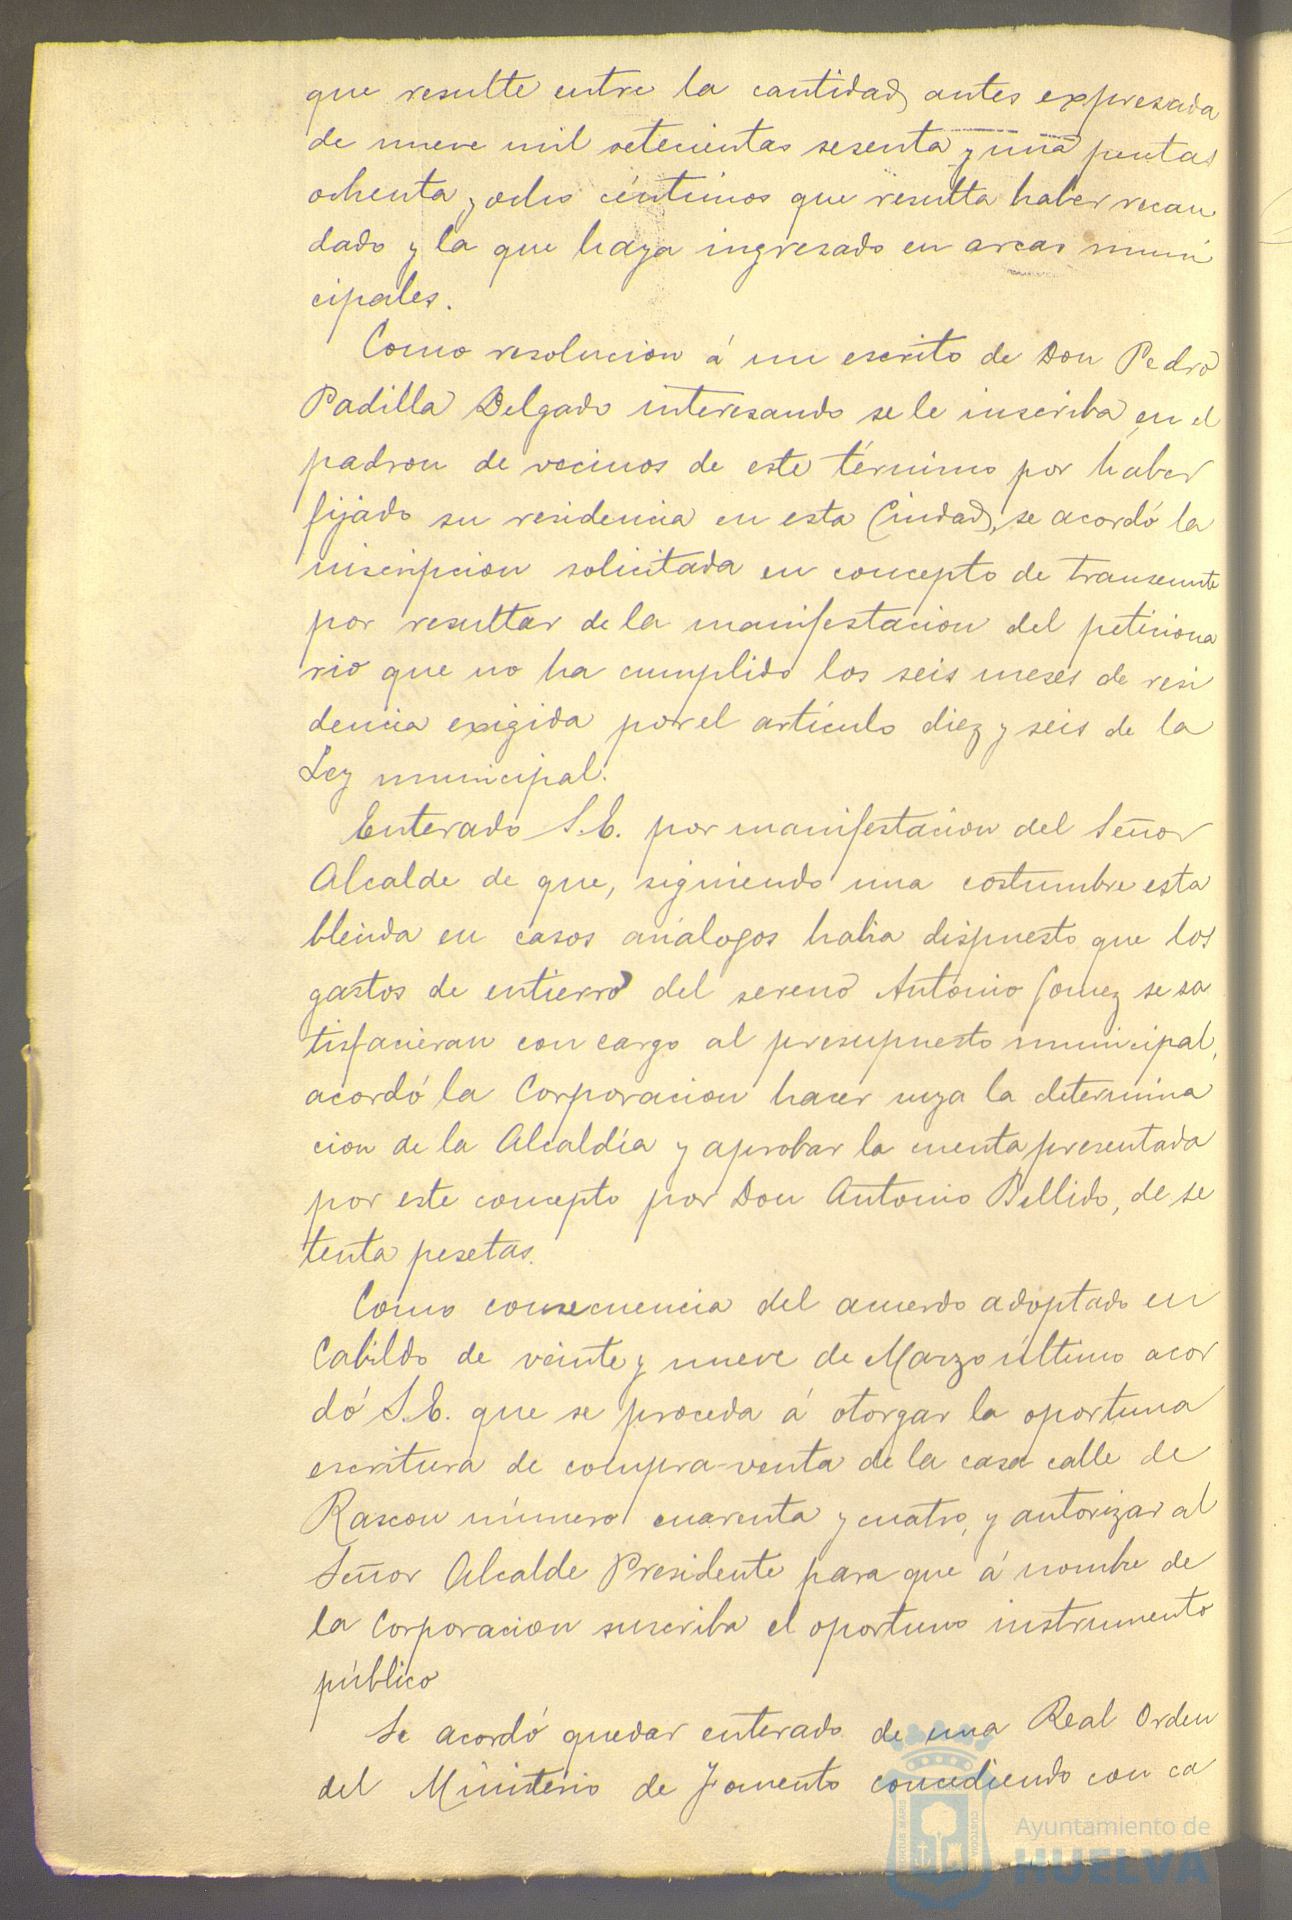 que resulte entre la cantidad, antes expresada
de nueve mil setecientas sesenta y una pesetas
ochenta y ocho céntimos que resulta haber recau
dado y la que haya ingresado en arcas muni
cipales.
Como resolucion á un escrito de Don Pedro
Padilla Delgado interesando se le inscriba en el
padron de vecinos de este término por haber
fijado su residencia en esta Ciudad, se acordó la
inscripcion solicitada en concepto de transeunte
por resultar de la manifestacion del peticiona
rio que no ha cumplido los seis meses de resi
dencia exigida por el artículo diez y seis de la
Ley municipal.
Enterado S.E. por manifestacion del Señor
Alcalde de que, siguiendo una costumbre esta
blecida en casos análogos habia dispuesto que los
gastos de entierro del sereno Antonio Gomez se sa
tisfacieran con cargo al presupuesto municipal,
acordó la Corporacion hacer suya la determina
cion de la Alcaldía y aprobar la cuenta presentada
por este concepto por Don Antonio Bellido, de se
tenta pesetas.
Como consecuencia del acuerdo adoptado en
Cabildo de veinte y nueve de Marzo último acor
dó S.E. que se proceda á otorgar la oportuna
escritura de compra-venta de la casa calle de
Rascon número cuarenta y cuatro, y autorizar al
Señor Alcalde Presidente para que á nombre de
la Corporacion suscriba el oportuno instrumento
público
Se acordó quedar enterado de una Real Orden
del Ministerio de Fomento concediendo con ca
Ayuntamiento de
HUELVA